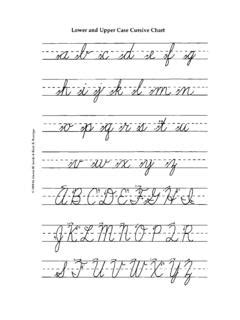 Lower and Upper Case Cursive Chart
a b c d e f g
h i j k l m n
o p q r s t u
v w x y z
A B C D E F G H I
J K L M N O P Q R
S T U V W X Y Z